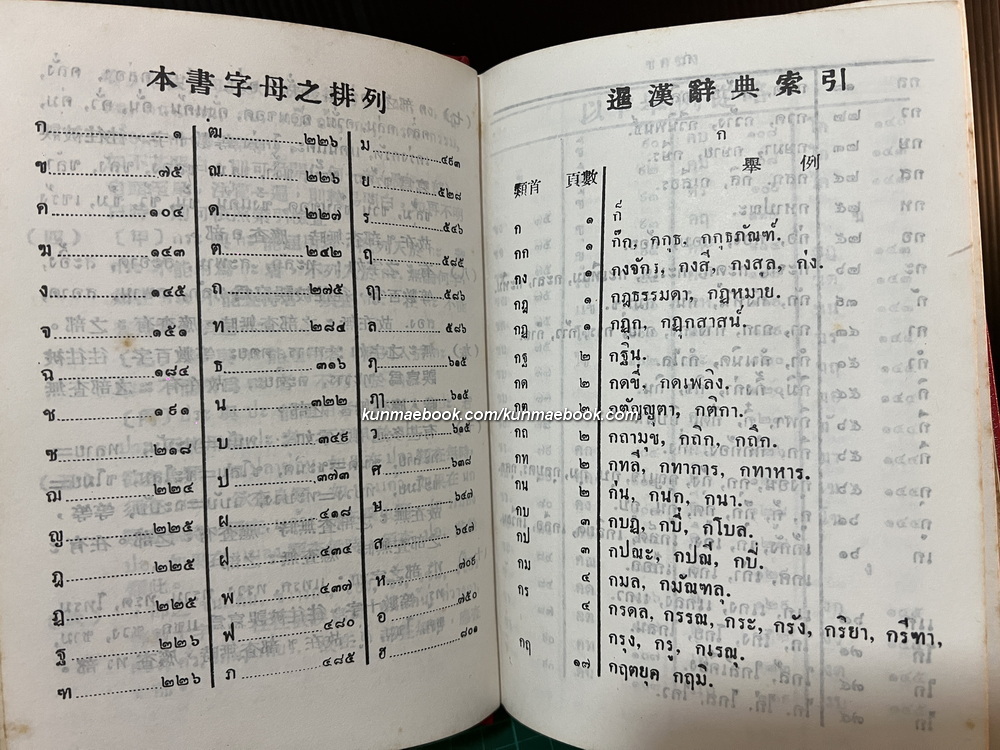 本書字母之排列
ก ๑
ข ๗๕
ค ๑๐๔
ฆ ๑๔๓
ง ๑๔๕
จ ๑๕๑
ฉ ๑๘๔
ช ๑๙๑
ซ ๒๑๘
ฌ ๒๒๔
ญ ๒๒๕
ฎ ๒๒๕
ฏ ๒๒๕
ฐ ๒๒๖
ฑ ๒๒๖
ฒ ๒๒๖
ณ ๒๒๖
ด ๒๒๗
ต ๒๔๒
ถ ๒๗๕
ท ๒๘๔
ธ ๓๑๖
น ๓๒๒
บ ๓๔๙
ป ๓๗๓
ผ ๔๑๘
ฝ ๔๓๔
พ ๔๓๗
ฟ ๔๘๐
ภ ๔๘๕
ม ๔๙๓
ย ๕๒๘
ร ๕๔๖
ฤ ๕๘๕
ฤๅ ๕๘๖
ล ๕๘๖
ฦ ๖๑๕
ฦๅ ๖๑๕
ว ๖๑๕
ศ ๖๓๘
ษ ๖๔๗
ส ๖๔๗
ห ๗๐๙
อ ๗๕๐
ฮ ๘๐๑
暹漢辭典索引
ก
類首 頁數 舉例
ก ๑ ก็
กก ๑ ก๊ก, กกุธ. กกุธภัณฑ์.
กง ๑ กงจักร, กงสี, กงสุล, ก่ง.
กฎ ๑ กฎธรรมดา, กฎหมาย.
กฏ ๑ กฏุก, กฏุกสาสน์.
กฐ ๒ กฐิน.
กด ๒ กดขี่, กดเพลิง.
กต ๒ กตัญญุตา, กติกา.
กถ ๒ กถามุข, กถิก, กถึก.
กท ๒ กทลี, กทาการ, กทาหาร.
กน ๒ ก่น, กนก, กนา.
กบ ๓ กบฏ, กบี่, กโบล.
กป ๓ กปณะ, กปณี, กบี่.
กม ๔ กมล, กมัณฑลุ.
กร ๔ กรดล, กรรณ, กระ, กรัง, กริยา, กรีฑา,
กรุง, กรู, กเรณุ.
กฤ ๑๗ กฤตยุค กฤมิ.
kunmaebook.com/kunmaebook.com